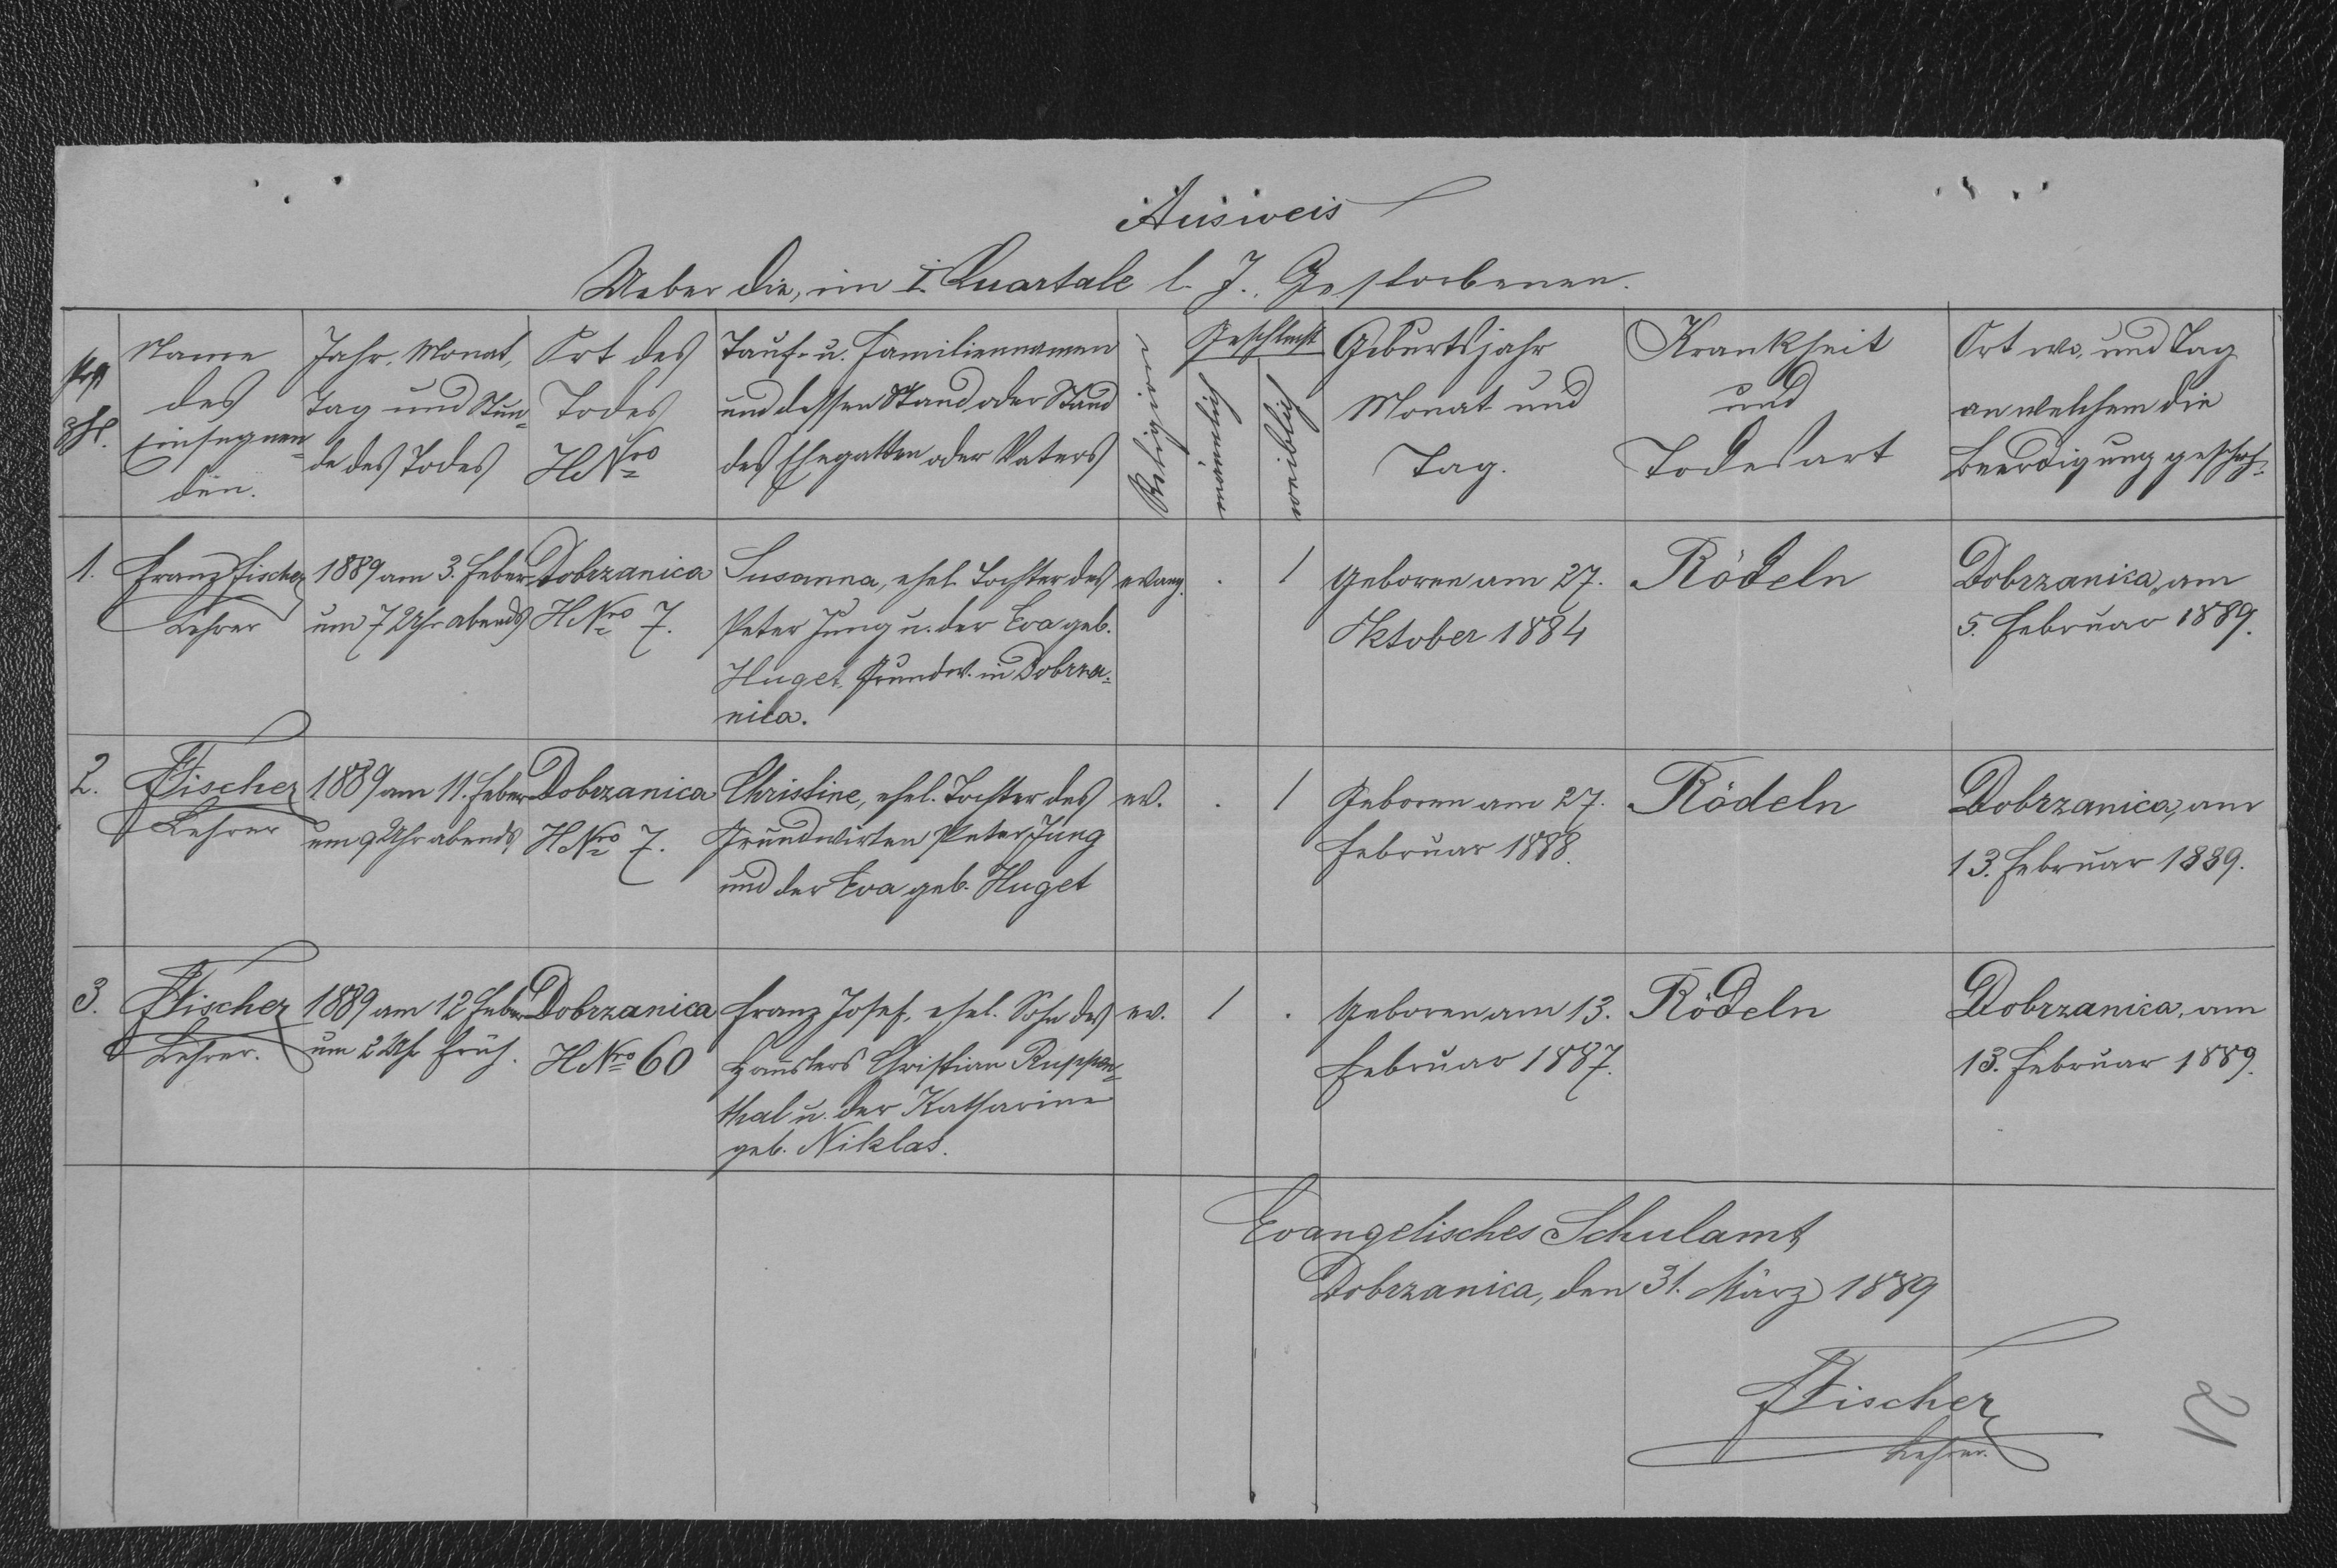 Ausweis
Ueber die, im I. Quartale l. J. Gestorbenen.
Name
des
Einsegnen=
den.
Jahr, Monat,
Tag und Stun=
de des Todes
Ort des
Todes
HNro
Tauf- u. Familiennamen
und dessen Stand oder Stand
des Ehegatten oder Vaters
Religion
Geschlecht
männlich
weiblich
Geburtsjahr
Monat und
Tag.
Krankheit
und
Todesart
Ort wo, und Tag
an welchem die
Beerdigung geschah.
1.
Franz Fischer
Lehrer
1889 am 3. Feber
um 7 Uhr abends
Dobrzanica
HNro 7.
Susanna, ehel. Tochter des
Peter Jung u. der Eva geb.
Huget, Grundw. in Dobrza=
nica.
evang.
.
1
Geboren am 27.
Oktober 1884
Rödeln
Dobrzanica, am
5. Februar 1889.
2.
FFischer
Lehrer
1889 am 11. Feber
um 9 Uhr abends
Dobrzanica
HNro 7.
Christine, ehel. Tochter des
Grundwirten Peter Jung
und der Eva geb. Huget
ev.
.
1
Geboren am 27.
Februar 1888.
Rödeln
Dobrzanica, am
13. Februar 1889.
3.
FFischer
Lehrer.
1889 am 12 Feber
um 2 Uhr früh.
Dobrzanica
HNro 60
Franz Josef, ehel. Sohn des
Häuslers Christian Ruppen=
thal u. der Katharine
geb. Niklas.
ev.
1
.
Geboren am 13.
Februar 1887.
Rödeln
Dobrzanica, am
13. Februar 1889.
Evangelisches Schulamt
Dobrzanica, den 31. März 1889
FFischer
Lehrer.